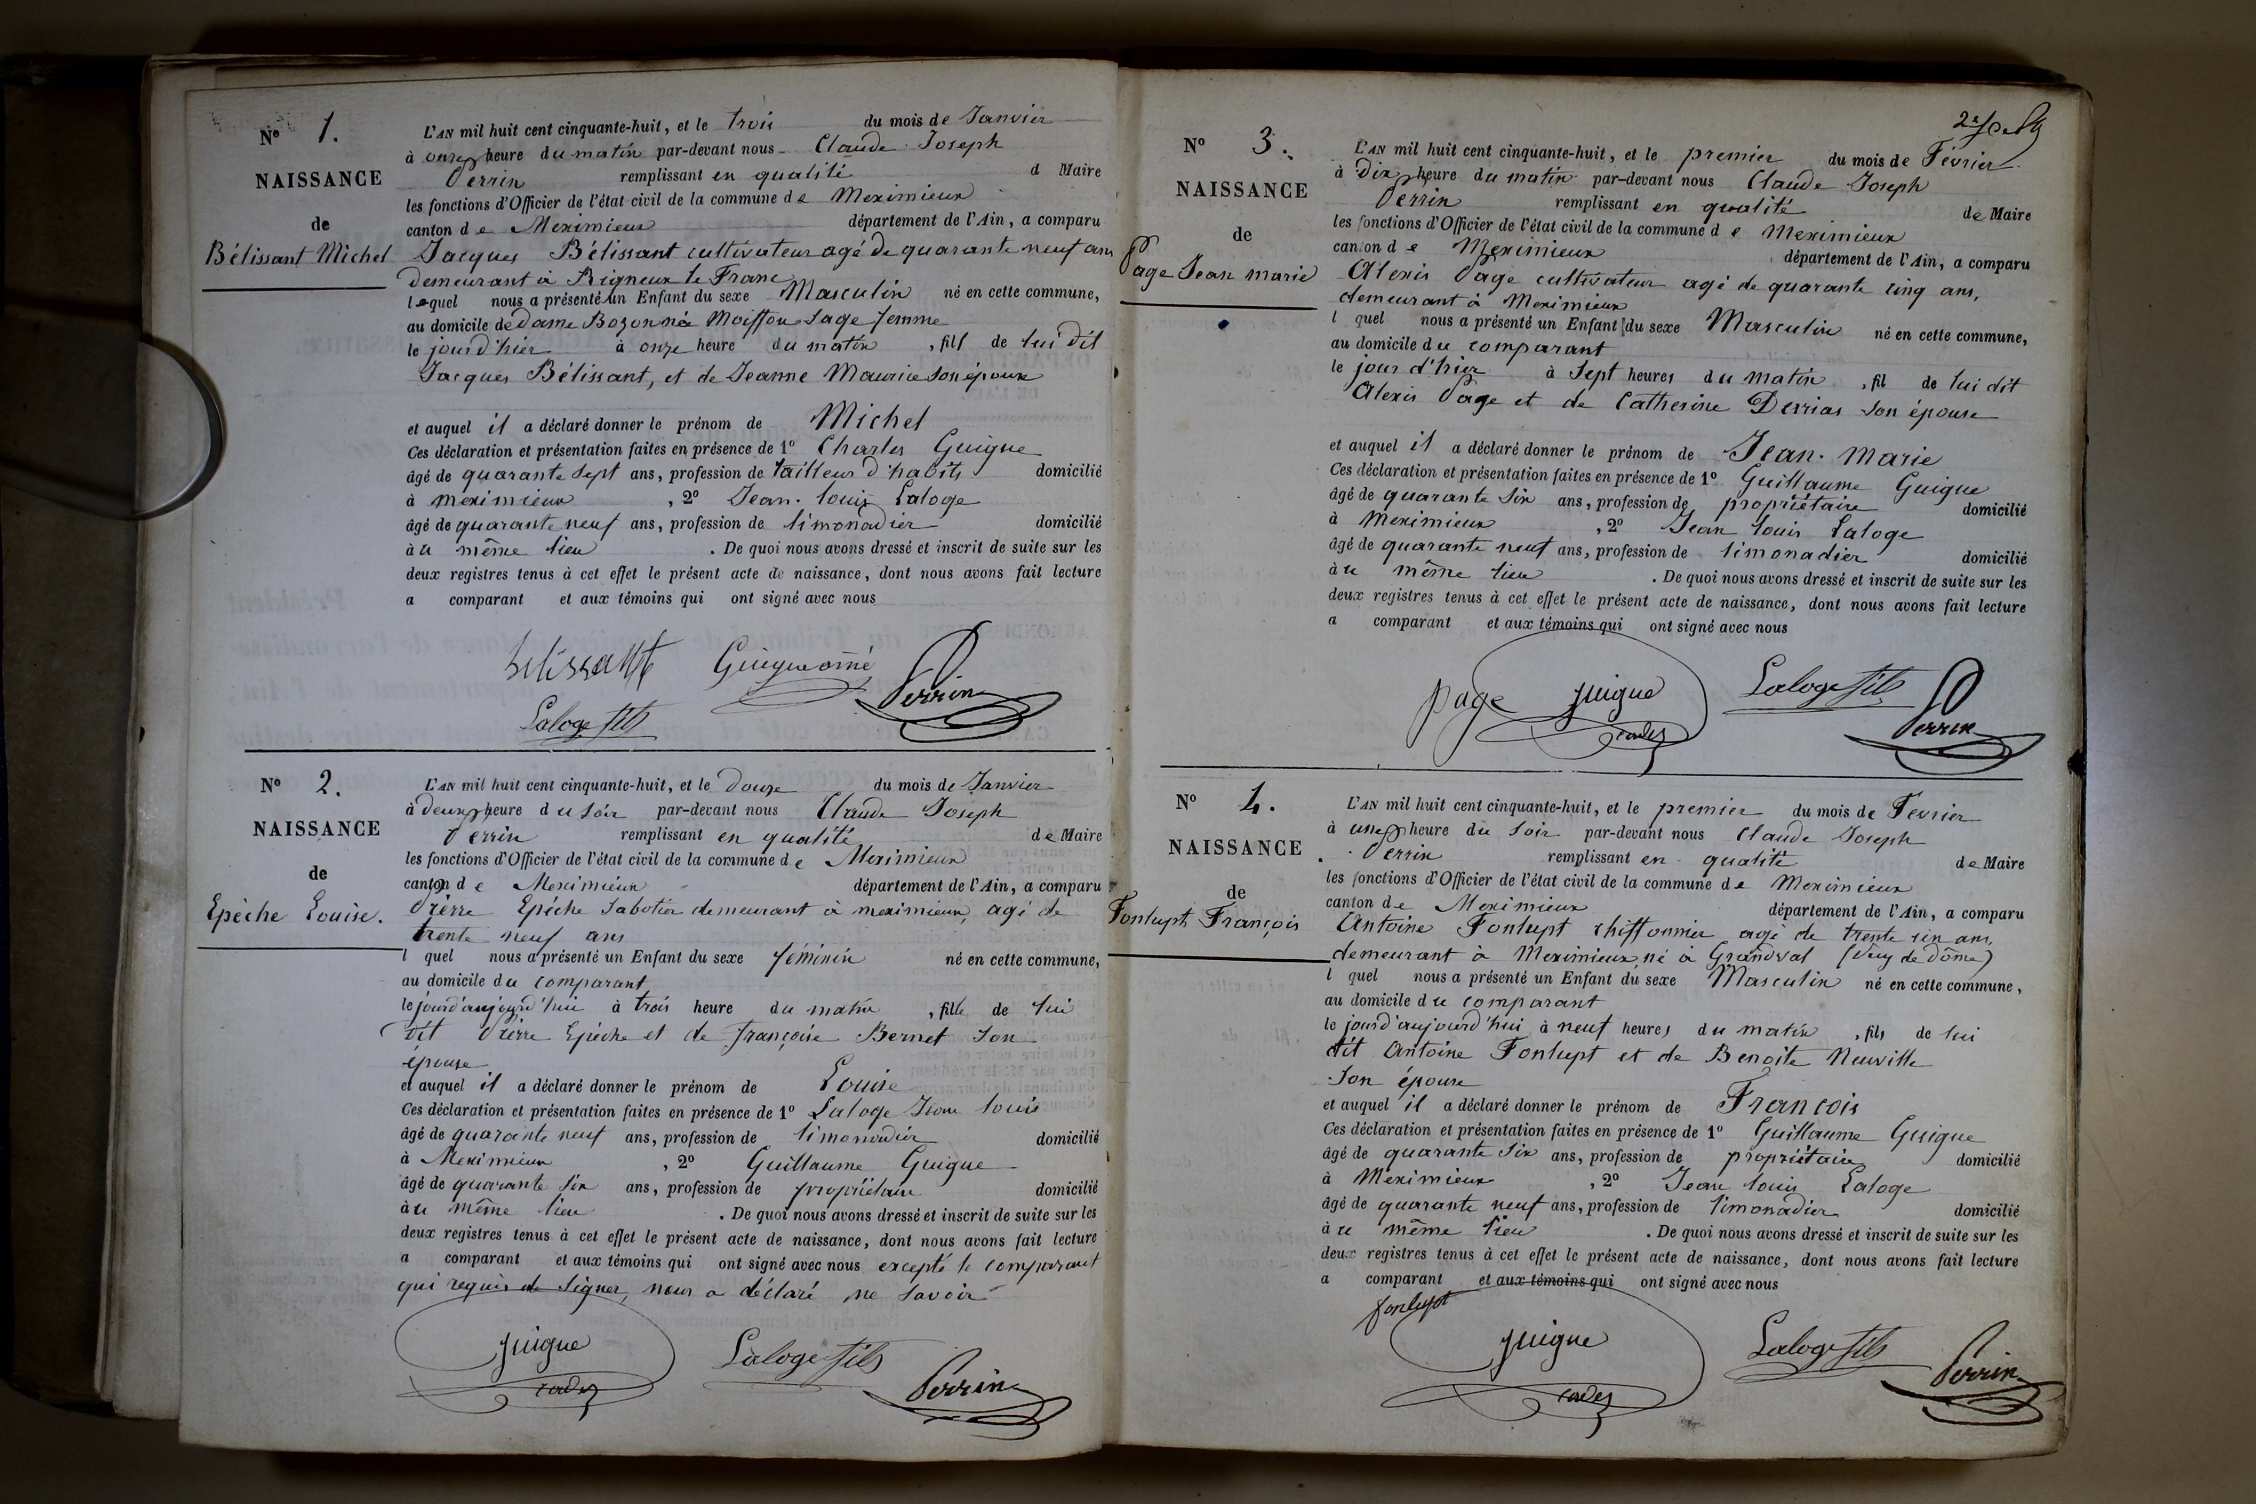 N° 1.
NAISSANCE
de
Bélissant Michel
L'AN mil huit cent cinquante-huit, et le trois du mois de Janvier
à onze heure du matin par-devant nous Claude Joseph
Perrin remplissant en qualité d Maire
les fonctions d'Officier de l'état civil de la commune de Meximieux
canton de Meximieux département de l'Ain, a comparu
Jacques Bélissant cultivateur agé de quarante neuf ans
demeurant à Rigneux le Franc
lequel nous a présenté un Enfant du sexe Masculin né en cette commune,
au domicile de dame Bozonné Moiffon Sage femme
le jour d'hier à onze heure du matin, fils de lui dit
Jacques Bélissant, et de Jeanne Maurice son épouse
et auquel il a déclaré donner le prénom de Michel
Ces déclaration et présentation faites en présence de 1° Charles Guigue
âgé de quarante sept ans, profession de tailleur d'habits domicilié
à meximieux, 2° Jean-louis Laloge
âgé de quarante neuf ans, profession de limonadier domicilié
à u même lieu. De quoi nous avons dressé et inscrit de suite sur les
deux registres tenus à cet effet le présent acte de naissance, dont nous avons fait lecture
a comparant et aux témoins qui ont signé avec nous
belissant Guigue ainé Perrin
Laloge fils
N° 2.
NAISSANCE
de
Epèche Louise.
L'AN mil huit cent cinquante-huit, et le Douze du mois de Janvier
à deux heure du soir par-devant nous Claude Joseph
Perrin remplissant en qualité de Maire
les fonctions d'Officier de l'état civil de la commune de Meximieux
canton de Meximieux département de l'Ain, a comparu
Pierre Epèche Sabotier demeurant à meximieux, agé de
trente neuf ans
l quel nous a présenté un Enfant du sexe féminin né en cette commune,
au domicile du comparant
le jour d'aujourd'hui à trois heure du matin, fille de lui
dit Pierre Epèche et de françoise Bernet son
épouse
et auquel il a déclaré donner le prénom de Louise
Ces déclaration et présentation faites en présence de 1° Laloge Jean louis
âgé de quarante neuf ans, profession de limonadier domicilié
à Meximieux, 2° Guillaume Guigue
âgé de quarante six ans, profession de propriétaire domicilié
à u même lieu. De quoi nous avons dressé et inscrit de suite sur les
deux registres tenus à cet effet le présent acte de naissance, dont nous avons fait lecture
a comparant et aux témoins qui ont signé avec nous excepté le comparant
qui requis de signer, nous a déclaré ne savoir
guigue Laloge fils Perrin
N° 3.
NAISSANCE
de
Page Jean marie
L'AN mil huit cent cinquante-huit, et le premier du mois de Février
à dix heure du matin par-devant nous Claude Joseph
Perrin remplissant en qualité de Maire
les fonctions d'Officier de l'état civil de la commune de Meximieux
canton de Meximieux département de l'Ain, a comparu
Alexis Page cultivateur agé de quarante cinq ans,
demeurant à Meximieux
l quel nous a présenté un Enfant du sexe Masculin né en cette commune,
au domicile du comparant
le jour d'hier à sept heures du matin, fil de lui dit
Alexis Page et de Catherine Derrias son épouse
et auquel il a déclaré donner le prénom de Jean-Marie
Ces déclaration et présentation faites en présence de 1° Guillaume Guigue
âgé de quarante six ans, profession de propriétaire domicilié
à Meximieux, 2° Jean louis Laloge
âgé de quarante neuf ans, profession de limonadier domicilié
à u même lieu. De quoi nous avons dressé et inscrit de suite sur les
deux registres tenus à cet effet le présent acte de naissance, dont nous avons fait lecture
a comparant et aux témoins qui ont signé avec nous
page guigue Laloge fils Perrin
N° 4.
NAISSANCE
de
Fonlupt François
L'AN mil huit cent cinquante-huit, et le premier du mois de Février
à une heure du soir par-devant nous Claude Joseph
Perrin remplissant en qualité de Maire
les fonctions d'Officier de l'état civil de la commune de Meximieux
canton de Meximieux département de l'Ain, a comparu
Antoine Fonlupt chiffonnier agé de trente six ans,
demeurant à Meximieux né à Grandval (Puy de dôme)
l quel nous a présenté un Enfant du sexe Masculin né en cette commune,
au domicile du comparant
le jour d'aujourd'hui à neuf heures du matin, fils de lui
dit Antoine Fonlupt et de Benoîte Neuville
Son épouse
et auquel il a déclaré donner le prénom de François
Ces déclaration et présentation faites en présence de 1° Guillaume Guigue
âgé de quarante six ans, profession de propriétaire domicilié
à Meximieux, 2° Jean louis Laloge
âgé de quarante neuf ans, profession de limonadier domicilié
à u même lieu. De quoi nous avons dressé et inscrit de suite sur les
deux registres tenus à cet effet le présent acte de naissance, dont nous avons fait lecture
a comparant et aux témoins qui ont signé avec nous
fonlupt
guigue Laloge fils Perrin